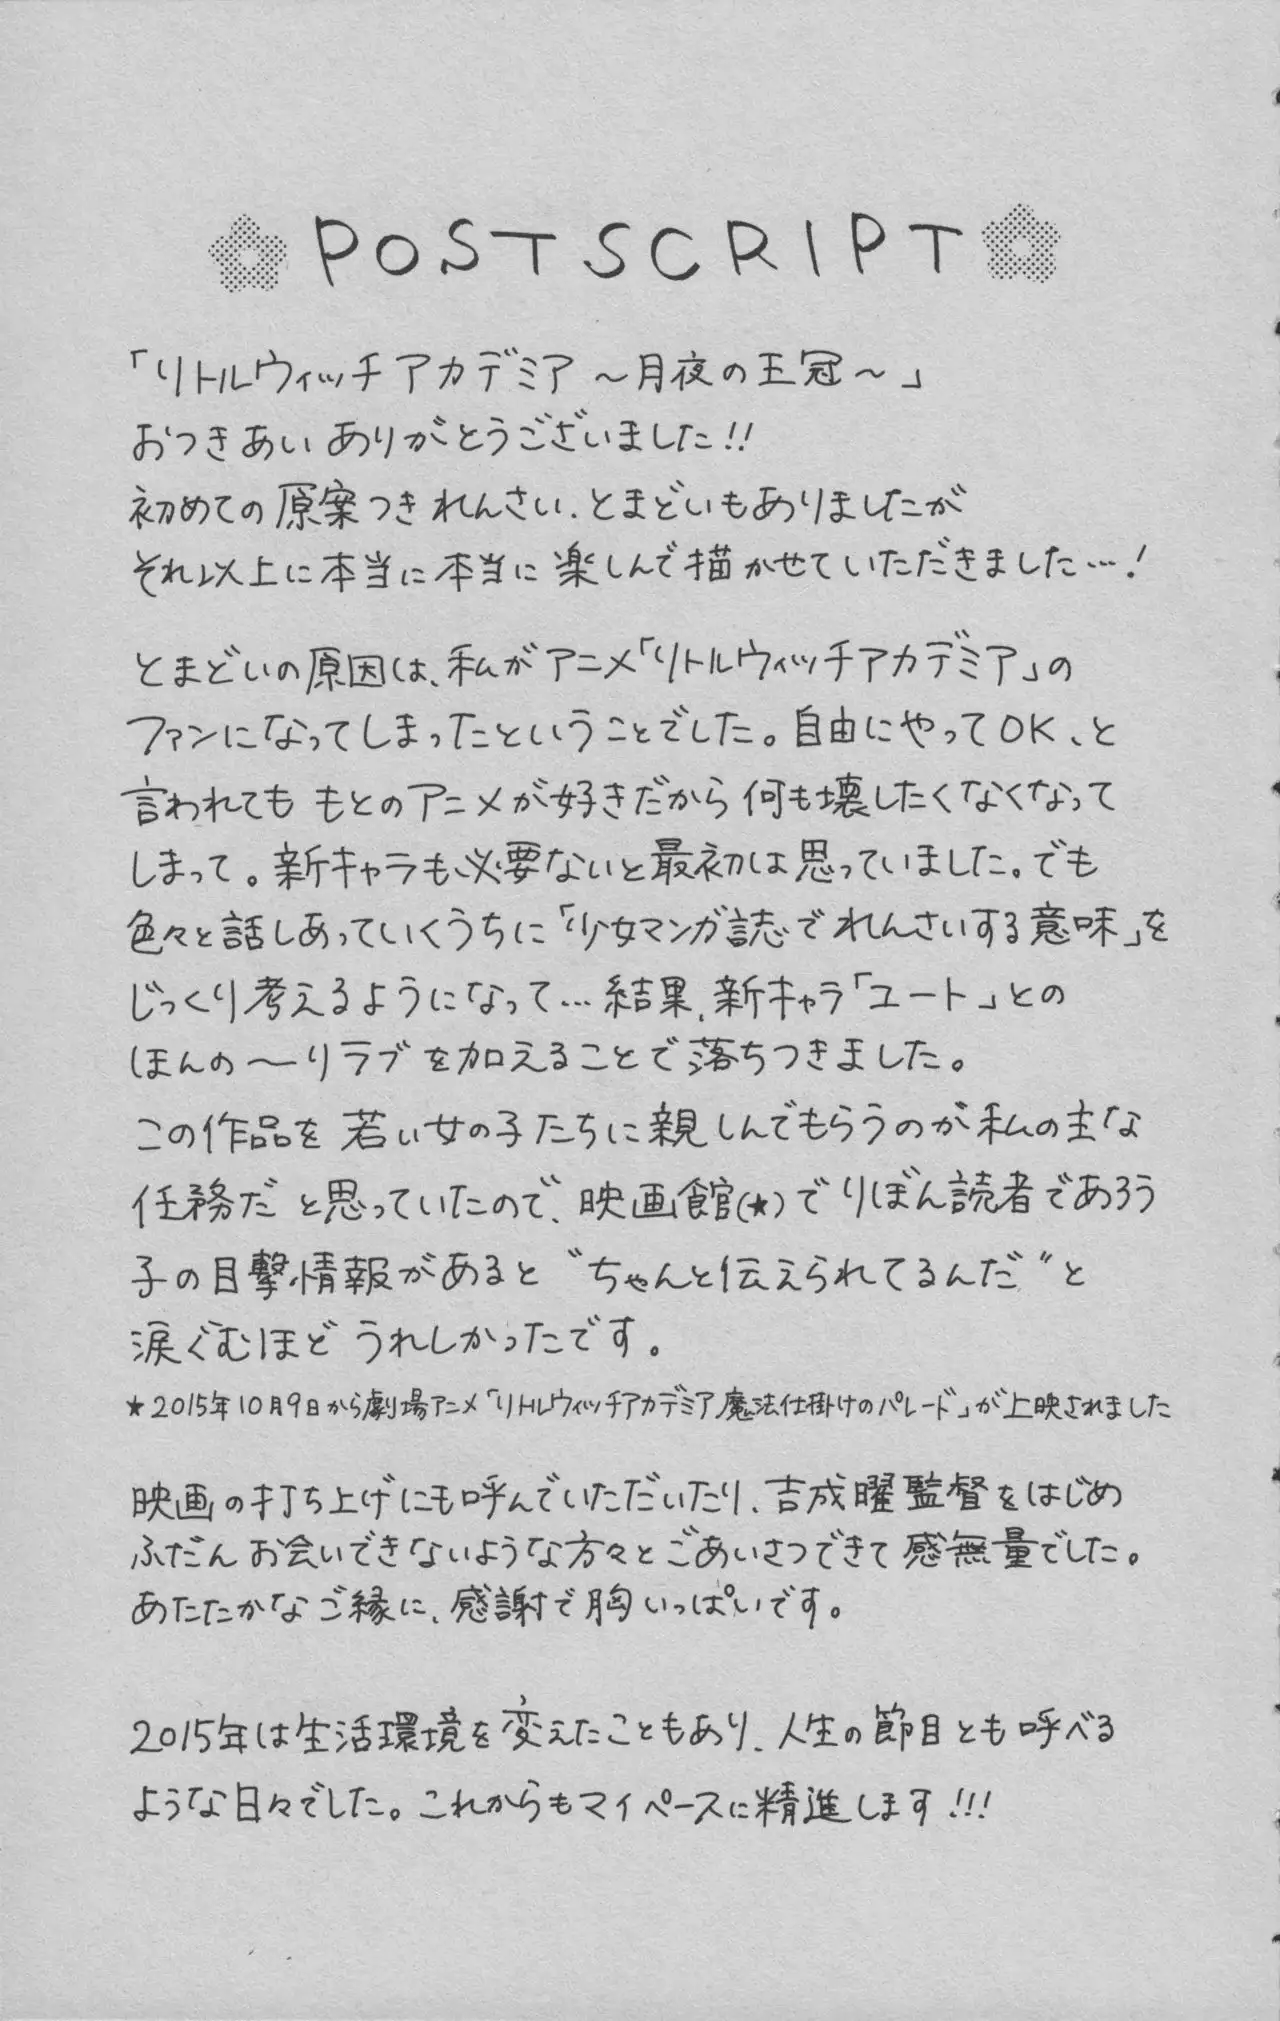 POSTSCRIPT
「リトルウィッチアカデミア 〜月夜の王冠〜」
おつきあい ありがとうございました!!
初めての原案つき れんさい、とまどいもありましたが
それ以上に本当に本当に楽しんで描かせていただきました…!
とまどいの原因は、私がアニメ「リトルウィッチアカデミア」の
ファンになってしまったということでした。自由にやってOK、と
言われても もとのアニメが好きだから何も壊したくなくなって
しまって。新キャラも必要ないと最初は思っていました。でも
色々と話しあっていくうちに「少女マンガ誌でれんさいする意味」を
じっくり考えるようになって…結果、新キャラ「ユート」との
ほんの〜りラブを加えることで落ちつきました。
この作品を若い女の子たちに親しんでもらうのが私の主な
任務だ と思っていたので、映画館(★)でりぼん読者であろう
子の目撃情報があると〝ちゃんと伝えられてるんだ〟と
涙ぐむほど うれしかったです。
★2015年10月9日から劇場アニメ「リトルウィッチアカデミア 魔法仕掛けのパレード」が上映されました
映画の打ち上げにも呼んでいただいたり、吉成曜監督をはじめ
ふだんお会いできないような方々とごあいさつできて感無量でした。
あたたかなご縁に、感謝で胸いっぱいです。
2015年は生活環境を変えたこともあり、人生の節目とも呼べる
ような日々でした。これからもマイペースに精進します!!!